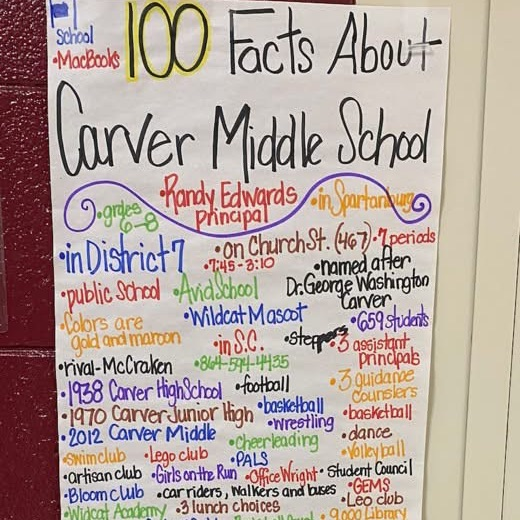 #1
School
•MacBooks
100 Facts About
Carver Middle School
•grdes 6-8
•Randy Edwards principal
•in Spartanburg
•in District 7
•on Church St. (467)
•7 periods
•7:45-3:10
•named after Dr. George Washington Carver
•public School
•Avid School
•Colors are gold and maroon
•Wildcat Mascot
•659 students
•in S.C.
•steppers
•3 assistant principals
•rival-McCraken
•864-594-4435
•football
•3 guidance counslers
•1938 Carver High School
•basketball
•basketball
•1970 Carver Junior High
•wrestling
•2012 Carver Middle
•cheerleading
•dance
•swim club
•Lego club
•PALS
•Volleyball
•artisan club
•Girls on the Run
•Office Wright
•Student Council
•Bloom club
•car riders, walkers and buses
•GEMS
•Leo club
•Widcat Academy
•3 lunch choices
•9,000 Library